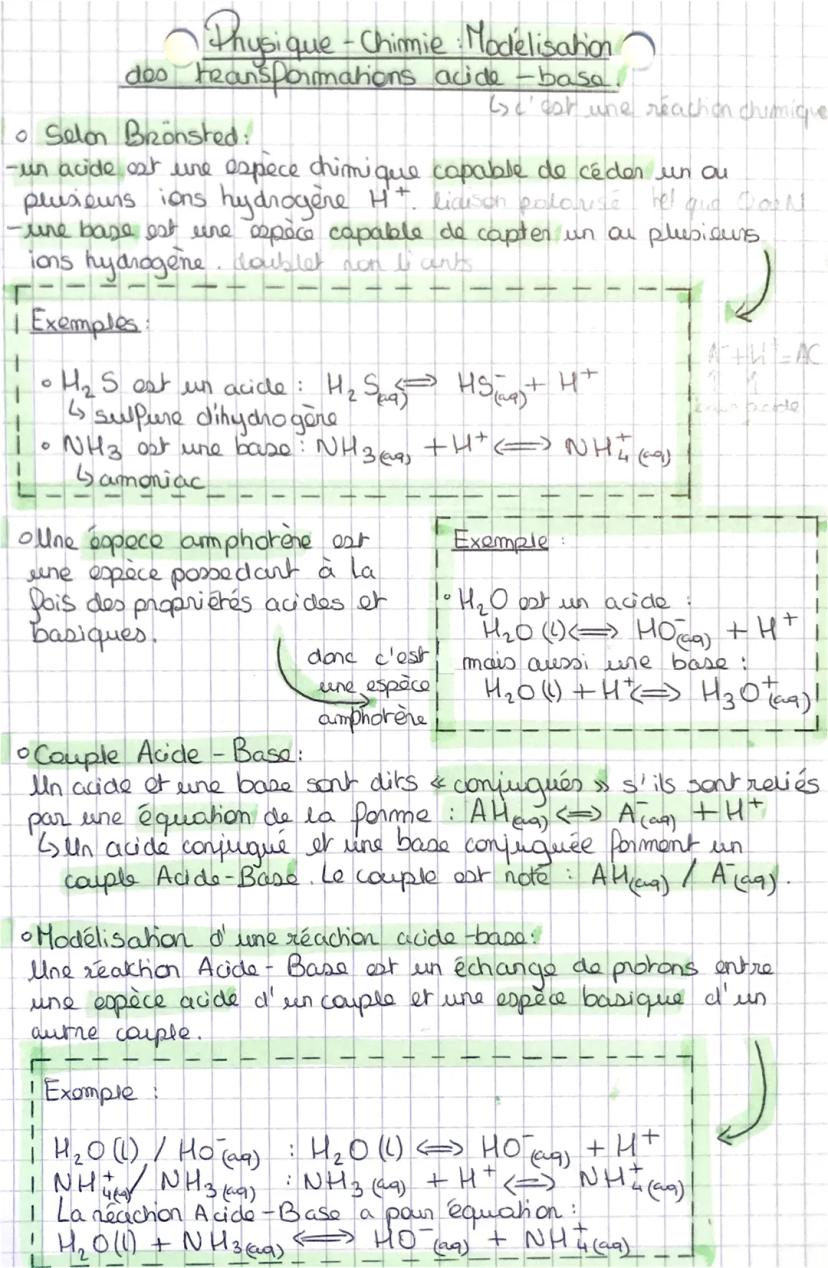 Physique - Chimie : Modélisation
des transformations acide - base.
↳ c'est une réaction chimique
○ Selon Brönsted :
- un acide est une espèce chimique capable de céder un ou
plusieurs ions hydrogène H⁺. liaison polarisé tel que O ou N
- une base est une espèce capable de capter un ou plusieurs
ions hydrogène. doublet non liants
Exemples :
• H₂S est un acide : H₂S(aq) ⟺ HS⁻(aq) + H⁺
↳ sulfure dihydrogène
• NH₃ est une base : NH₃(aq) + H⁺ ⟺ NH₄⁺(aq)
↳ amoniac
A⁻ + H⁺ = AC
○ Une éspece amphotère est
une espèce possedant à la
fois des propriétés acides et
basiques.
donc c'est
une espèce
amphotère
Exemple :
• H₂O est un acide :
H₂O (l) ⟺ HO⁻(aq) + H⁺
mais aussi une base :
H₂O (l) + H⁺ ⟺ H₃O⁺(aq)
○ Couple Acide - Base :
Un acide et une base sont dits « conjugués » s'ils sont reliés
par une équation de la forme : AH(aq) ⟺ A⁻(aq) + H⁺
↳ Un acide conjugué et une base conjuguée forment un
couple Acide-Base. Le couple est noté : AH(aq) / A⁻(aq).
○ Modélisation d'une réaction acide-base :
Une réaktion Acide - Base est un échange de protons entre
une espèce acide d'un couple et une espèce basique d'un
autre couple.
Exemple :
H₂O (l) / HO⁻(aq) : H₂O (l) ⟺ HO⁻(aq) + H⁺
NH₄⁺(aq) / NH₃(aq) : NH₃(aq) + H⁺ ⟺ NH₄⁺(aq)
La réaction Acide - Base a pour équation :
H₂O(l) + NH₃(aq) ⟺ HO⁻(aq) + NH₄⁺(aq)